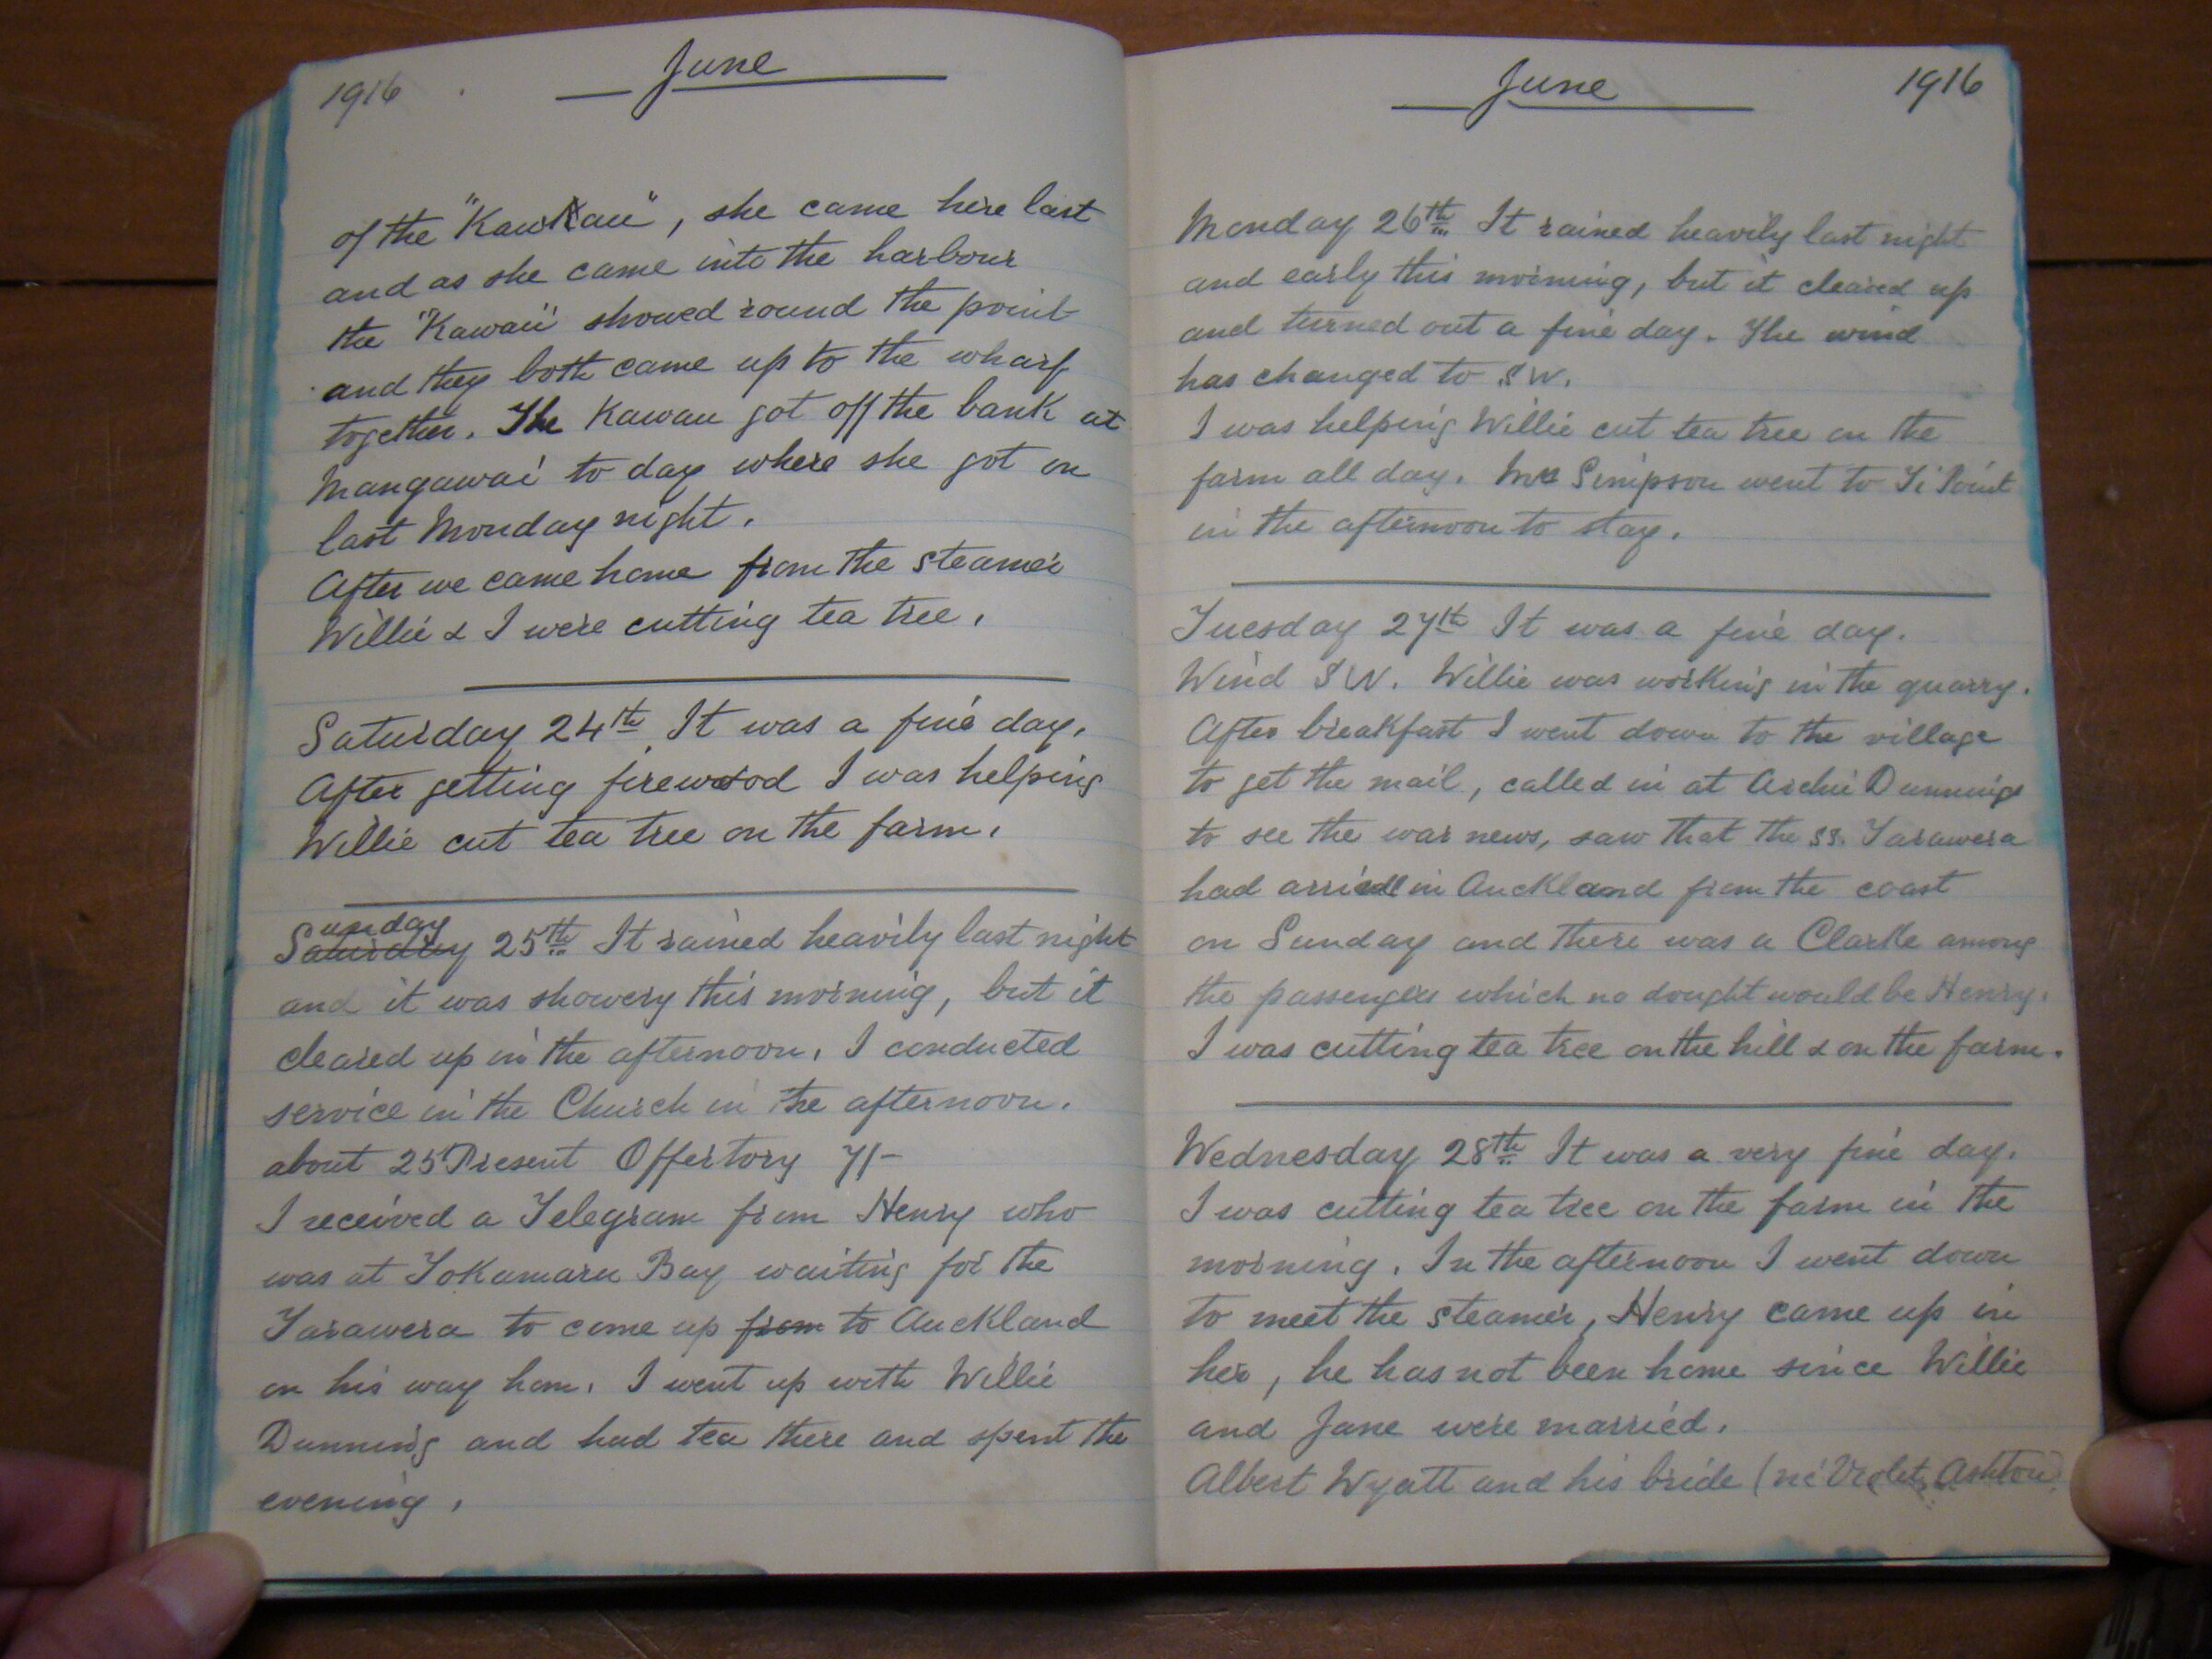 1916
June
of the "Kawau", she came here last
and as she came into the harbour
the "Kawau" showed round the point
and they both came up to the wharf
together. The Kawau got off the bank at
Mangawai to day where she got on
last Monday night.
After we came home from the steamer
Willie & I were cutting tea tree.
Saturday 24th It was a fine day.
After getting firewood I was helping
Willie cut tea tree on the farm.
Sunday 25th It rained heavily last night
and it was showery this morning, but it
cleared up in the afternoon. I conducted
service in the Church in the afternoon.
about 25 Present Offertory 7/-
I received a Telegram from Henry who
was at Tokamaru Bay waiting for the
Tarawera to come up from to Auckland
on his way hom. I went up with Willie
Dunning and had tea there and spent the
evening.
June
1916
Monday 26th It rained heavily last night
and early this morning, but it cleared up
and turned out a fine day. The wind
has changed to SW.
I was helping Willie cut tea tree on the
farm all day. Mrs Simpson went to Ti Point
in the afternoon to stay.
Tuesday 27th It was a fine day.
Wind SW. Willie was working in the quarry.
After breakfast I went down to the village
to get the mail, called in at Archie Dunnings
to see the war news, saw that the ss. Tarawera
had arrived in Auckland from the coast
on Sunday and there was a Clarke among
the passengers which no dought would be Henry.
I was cutting tea tree on the hill & on the farm.
Wednesday 28th It was a very fine day.
I was cutting tea tree on the farm in the
morning. In the afternoon I went down
to meet the steamer, Henry came up in
her, he has not been home since Willie
and Jane were married.
Albert Wyatt and his bride (ne Violet Ashton)